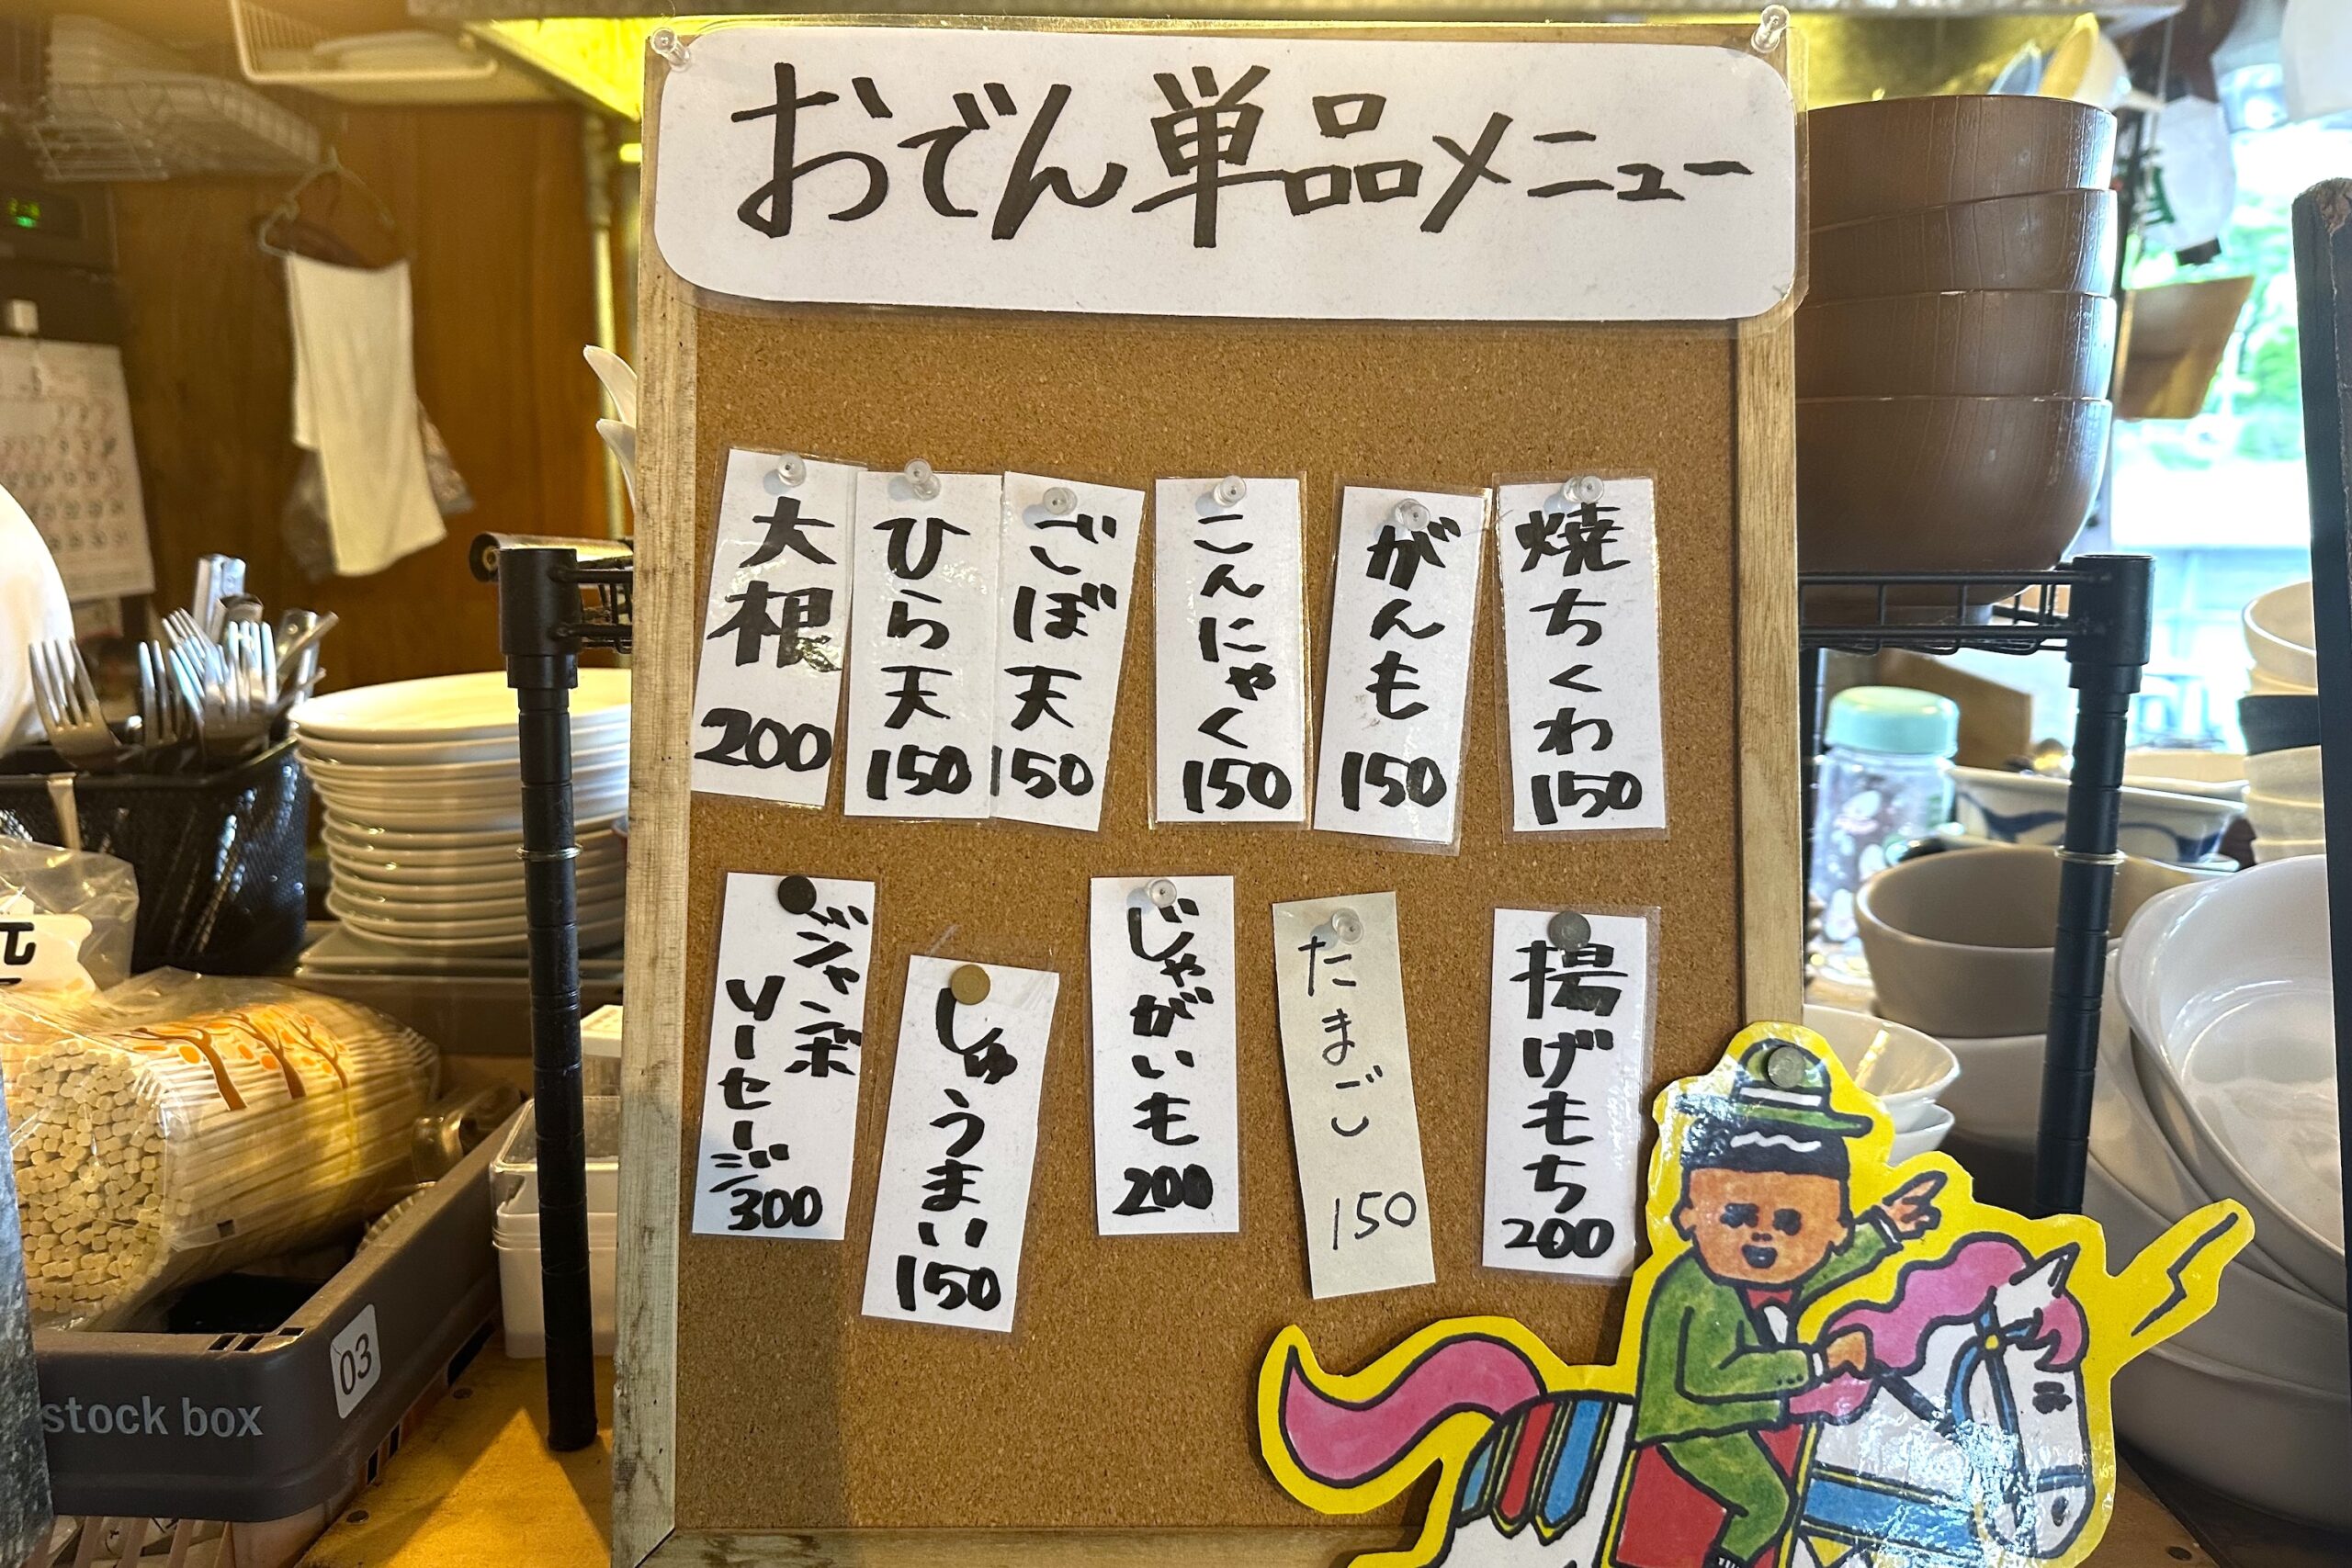 おでん単品メニュー
大根
200
ひら天
150
ごぼ天
150
こんにゃく
150
がんも
150
焼ちくわ
150
ジャンボ
ソーセージ
300
しゅうまい
150
じゃがいも
200
たまご
150
揚げもち
200
stock box
03